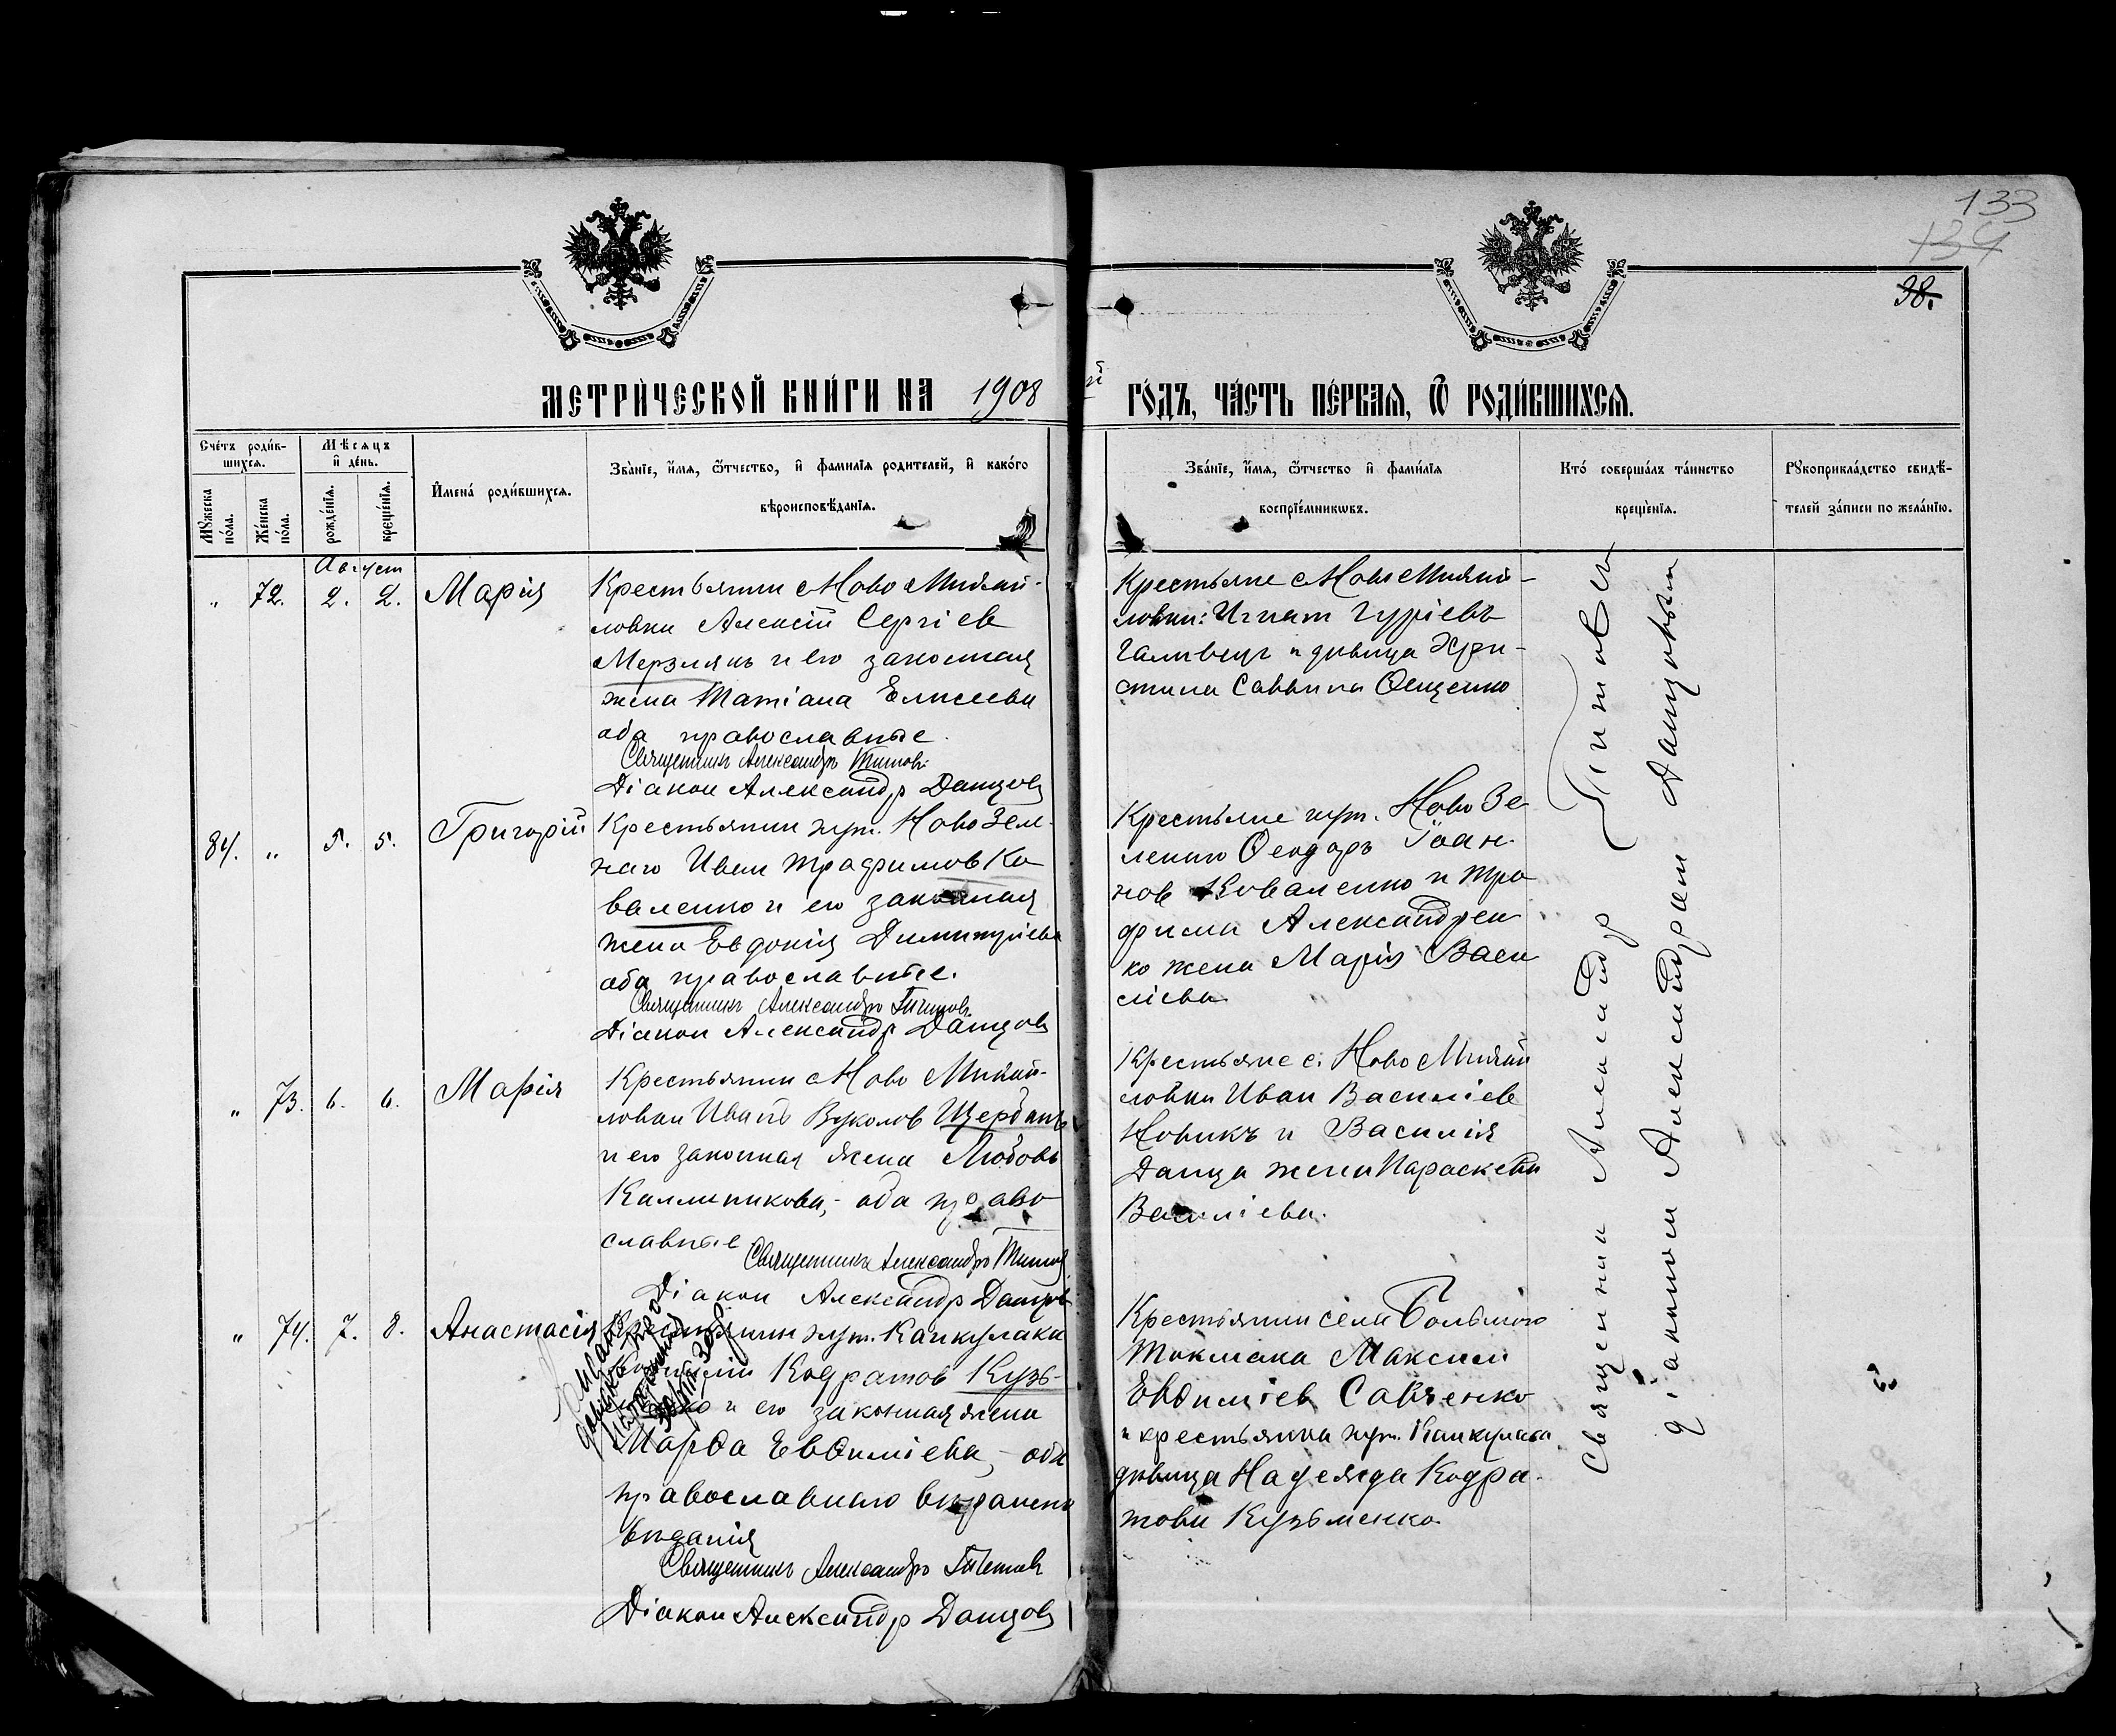 133
134
98.
МЕТРИ́ЧЕСКОЙ КНИ́ГИ НА 1908 й ГО́ДЪ, ЧА́СТЬ ПЕ́РВАѦ, Ѿ РОДИ́ВШИХСѦ.
Сче́тъ роди́в-
шихсѧ.
Мѣсѧцъ
и҆ де́нь.
Мꙋжеска
по́ла.
Же́нска
по́ла.
рожде́нїѧ.
креще́нїѧ.
И҆мена́ роди́вшихсѧ.
Зва́нїе, и҆́мѧ, ѻ҆́тчество, и҆ фами́лїѧ родителей, и҆ како́го
вѣроисповѣ́данїѧ.
Зва́нїе, и҆́мѧ, ѻ҆́тчество и҆ фами́лїѧ
воспрїе́мникѡвъ.
Кто́ соверша́лъ та́инство
креще́нїѧ.
Рꙋкоприкла́дство свидѣ́-
телей за́писи по жела́нїю.
Август
" 72. 2. 2. Марія
Крестьянин с Ново Михай-
ловки Алексій Сергіев
Мерзлякъ и его законная
жена Татіана Елисеева
оба православные.
Священникъ Александръ Титовъ
Діакон Александр Данцов
Крестьяне с Ново Михай-
ловки: Игнат Гуріевъ
и девица Хри-
стина Саввина Ощенко
84. " 5. 5. Григорій
Крестьянин хут. Ново Зеле-
наго Иван Трофимов Ко
валенко и его законная
жена Евдокія Димитріева
оба православные.
Священникъ Александръ Титовъ
Діакон Александр Данцов
Крестьяне хут. Ново Зе
ленаго Ѳеодоръ Іоан-
нов Коваленко и Тро
фима Александрен
ко жена Марія Васи
лієва
" 73. 6. 6. Марія
Крестьянин с Ново Михай-
ловки Иванъ Вуколов Щербакъ
и его законная жена Любовь
Каллиникова,- оба право
славные
Священникъ Александръ Титов
Діакон Александр Данцов
Крестьяне с. Ново Михай
ловки Иван Василіев
Новикъ и Василія
Данца жена Параскева
Василіева.
" 74. 7. 8. Анастасія
Крестьянин хут. Канкулака
Кодратов Кузь-
менко и его законная жена
Марѳа Евѳиміева,- оба
православнаго вероиспо
веданія
Священникъ Александръ Титовъ
Діакон Александр Данцов
Крестьянин села Большого
Токмака Максим
Евѳиміев Савченко
и крестьянка хут. Канкулака
девица Надежда Кодра-
това Кузьменко
Священник Александр Титов с
діаконом Александром Данцовым